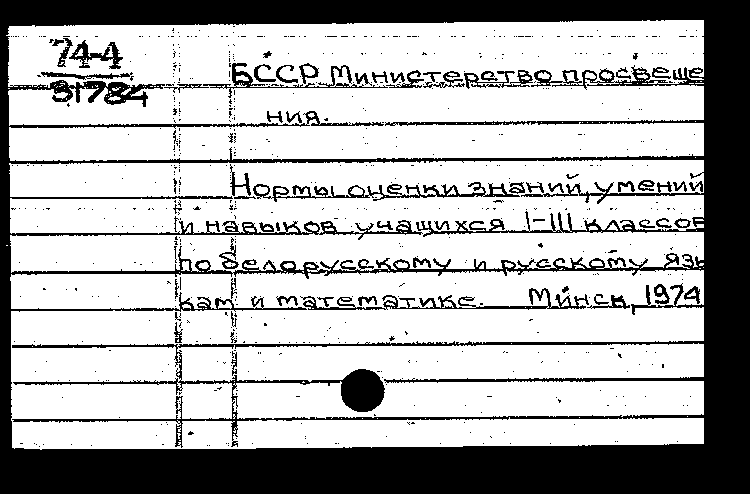 74-4
31784
БССР Министерство просвеще
ния.
Нормы оценки знаний, умений
и навыков учащихся I-III классов
по белорусскому и русскому язы
кам и математике. Минск, 1974